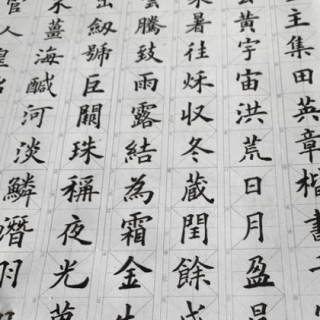 主集田英章楷書千
黄宇宙洪荒日月盈昃
暑往秌収冬蔵閏餘成
雲騰致雨露結為霜金生
劔號巨闕珠稱夜光菓
薑海醎河淡鱗潛羽
官人皇始